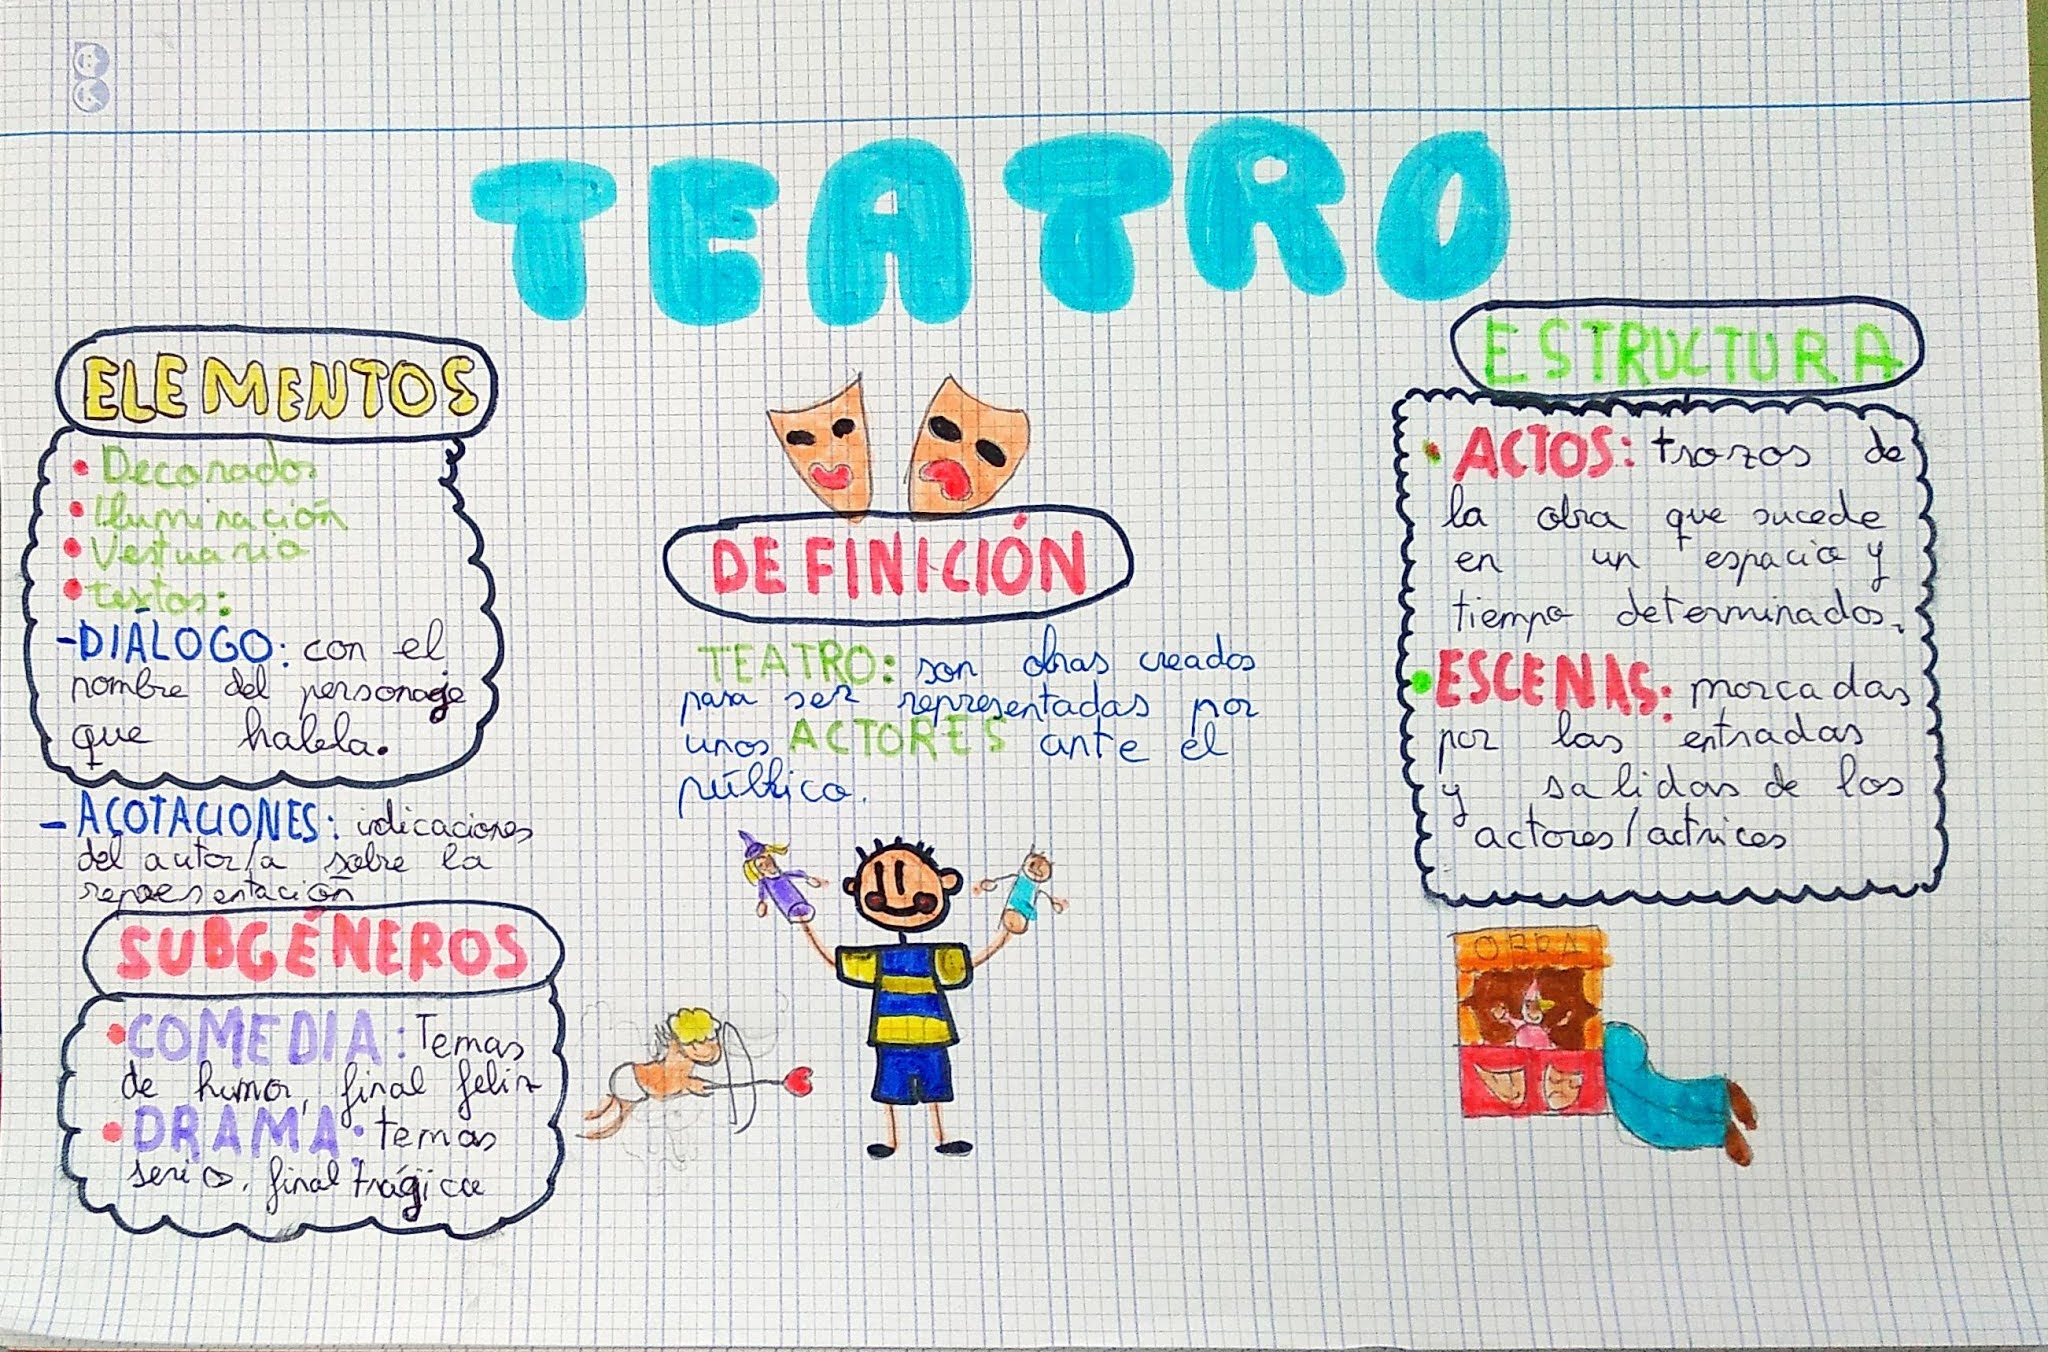 TEATRO
ELEMENTOS
• Decorados
• Iluminación
• Vestuario
• textos:
- DIÁLOGO: con el
nombre del personaje
que habla.
- ACOTACIONES: indicaciones
del autor/a sobre la
representación
SUBGÉNEROS
• COMEDIA: Temas
de humor, final feliz
• DRAMA: temas
serios, final trágico
DEFINICIÓN
TEATRO: son obras creadas
para ser representadas por
unos ACTORES ante el
público.
ESTRUCTURA
• ACTOS: trozos de
la obra que sucede
en un espacio y
tiempo determinados.
• ESCENAS: marcadas
por las entradas
y salidas de los
actores/actrices
OBRA